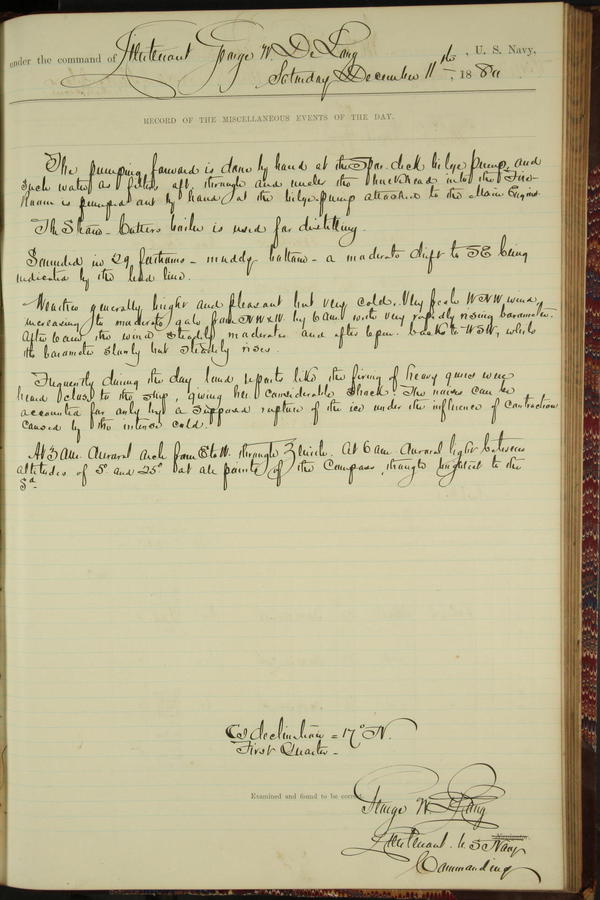 under the command of Lieutenant George W. De Long, U. S. Navy,
Saturday December 11th, 1880
RECORD OF THE MISCELLANEOUS EVENTS OF THE DAY.
The pumping forward is done by hand at the Spar-deck bilge pump, and
such water as filters aft, through and under the bulkhead into the Fire-
Room is pumped out by hand at the bilge pump attached to the Main Engine.
The Steam-Cutters boiler is used for distilling.
Sounded in 29 fathoms - muddy bottom - a moderate drift to SE being
indicated by the lead line.
Weather generally bright and pleasant but very cold. Very fresh WNW wind,
increasing to moderate gale from NWxW. by 6 am with very rapidly rising barometer.
After 10 am the wind steadily moderates and after 6 pm. backs to WSW, while
the barometer slowly but steadily rises.
Frequently during the day loud reports like the firing of heavy guns were
heard close to the ship, giving her considerable shock. The noises can be
accounted for only by a supposed rupture of the ice under the influence of contraction
caused by the intense cold.
At 3 AM. Auroral arch from E to W. through Zenith. At 6 am. Auroral light between
altitudes of 5° and 25° at all points of the Compass, though brightest to the
Sd.
declination = 17° N.
First Quarter -
Examined and found to be correct.
George W. De Long
Lieutenant. U. S Navy
Commanding